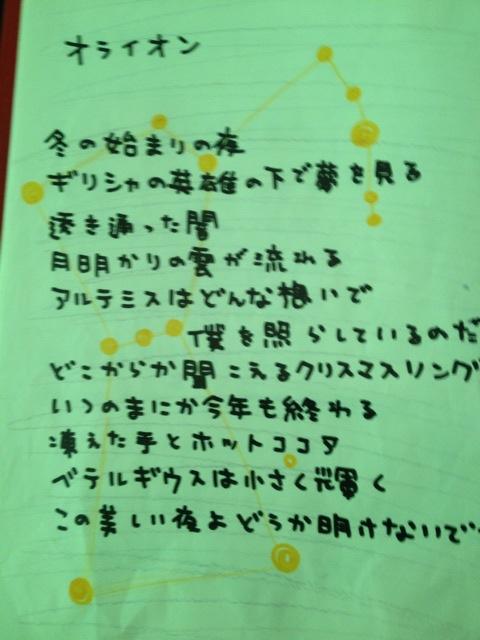 オライオン
冬の始まりの夜
ギリシャの英雄の下で夢を見る
透き通った闇
月明かりの雲が流れる
アルテミスはどんな想いで
僕を照らしているのだ
どこからか聞こえるクリスマスソング
いつのまにか今年も終わる
凍えた手とホットココア
ベテルギウスは小さく輝く
この美しい夜よどうか明けないで